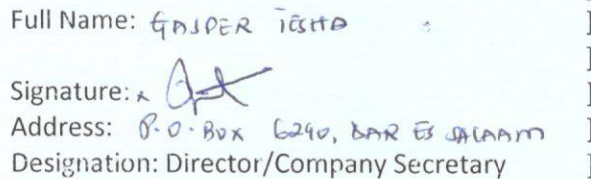 Full Name: GASPER TESHA ]
]
Signature: x ]
Address: P.O. BOX 6290, DAR ES SALAAM ]
Designation: Director/Company Secretary ]